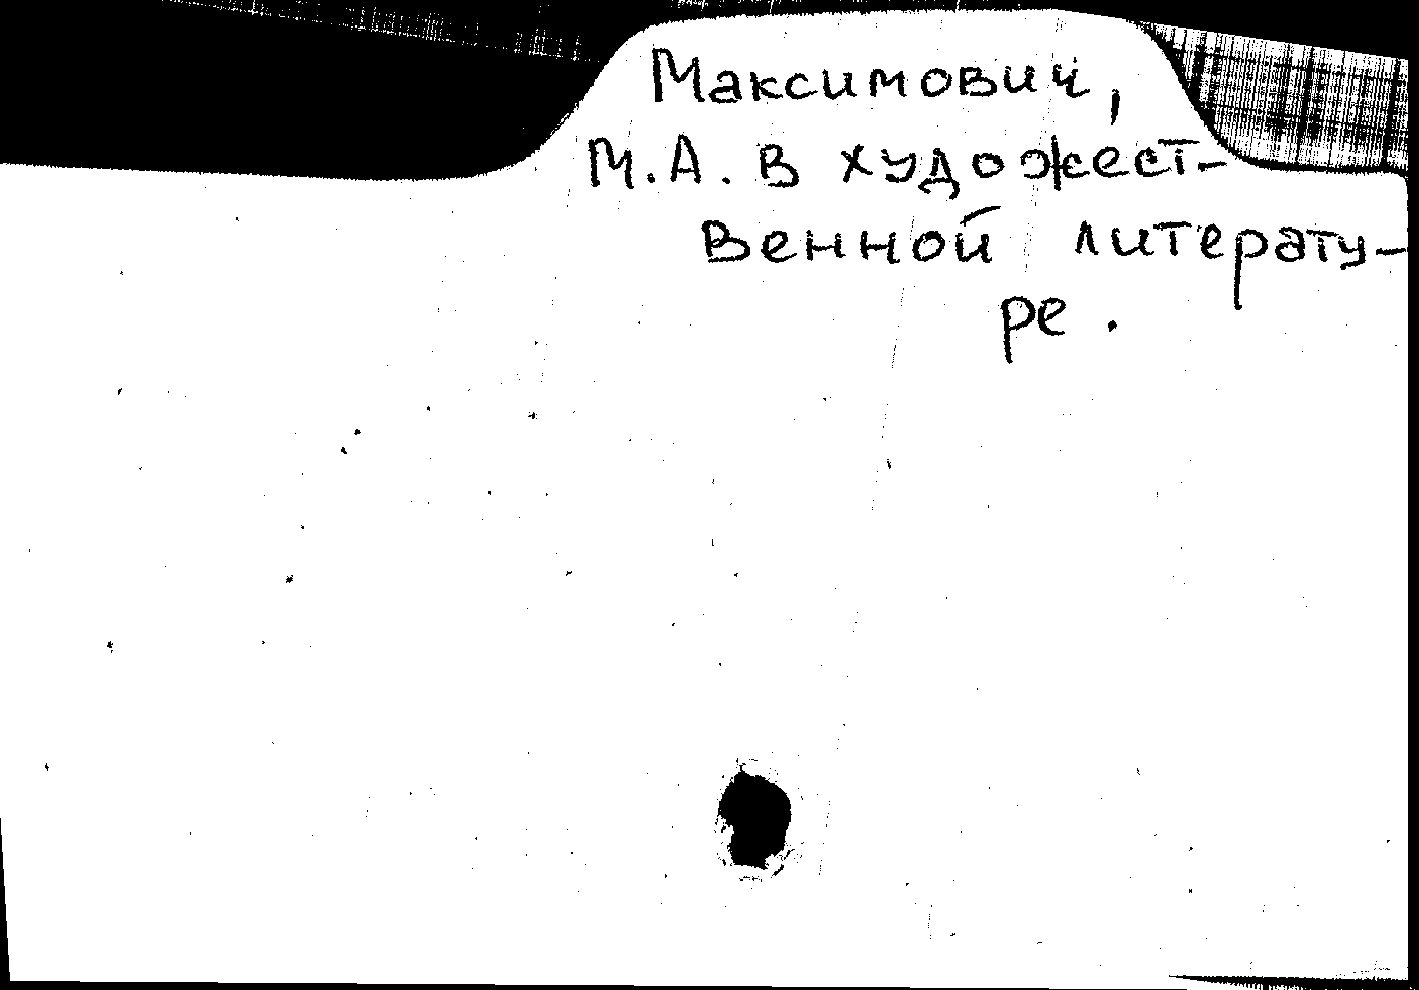 Максимович,
М.А. в художест-
венной литерату-
ре.